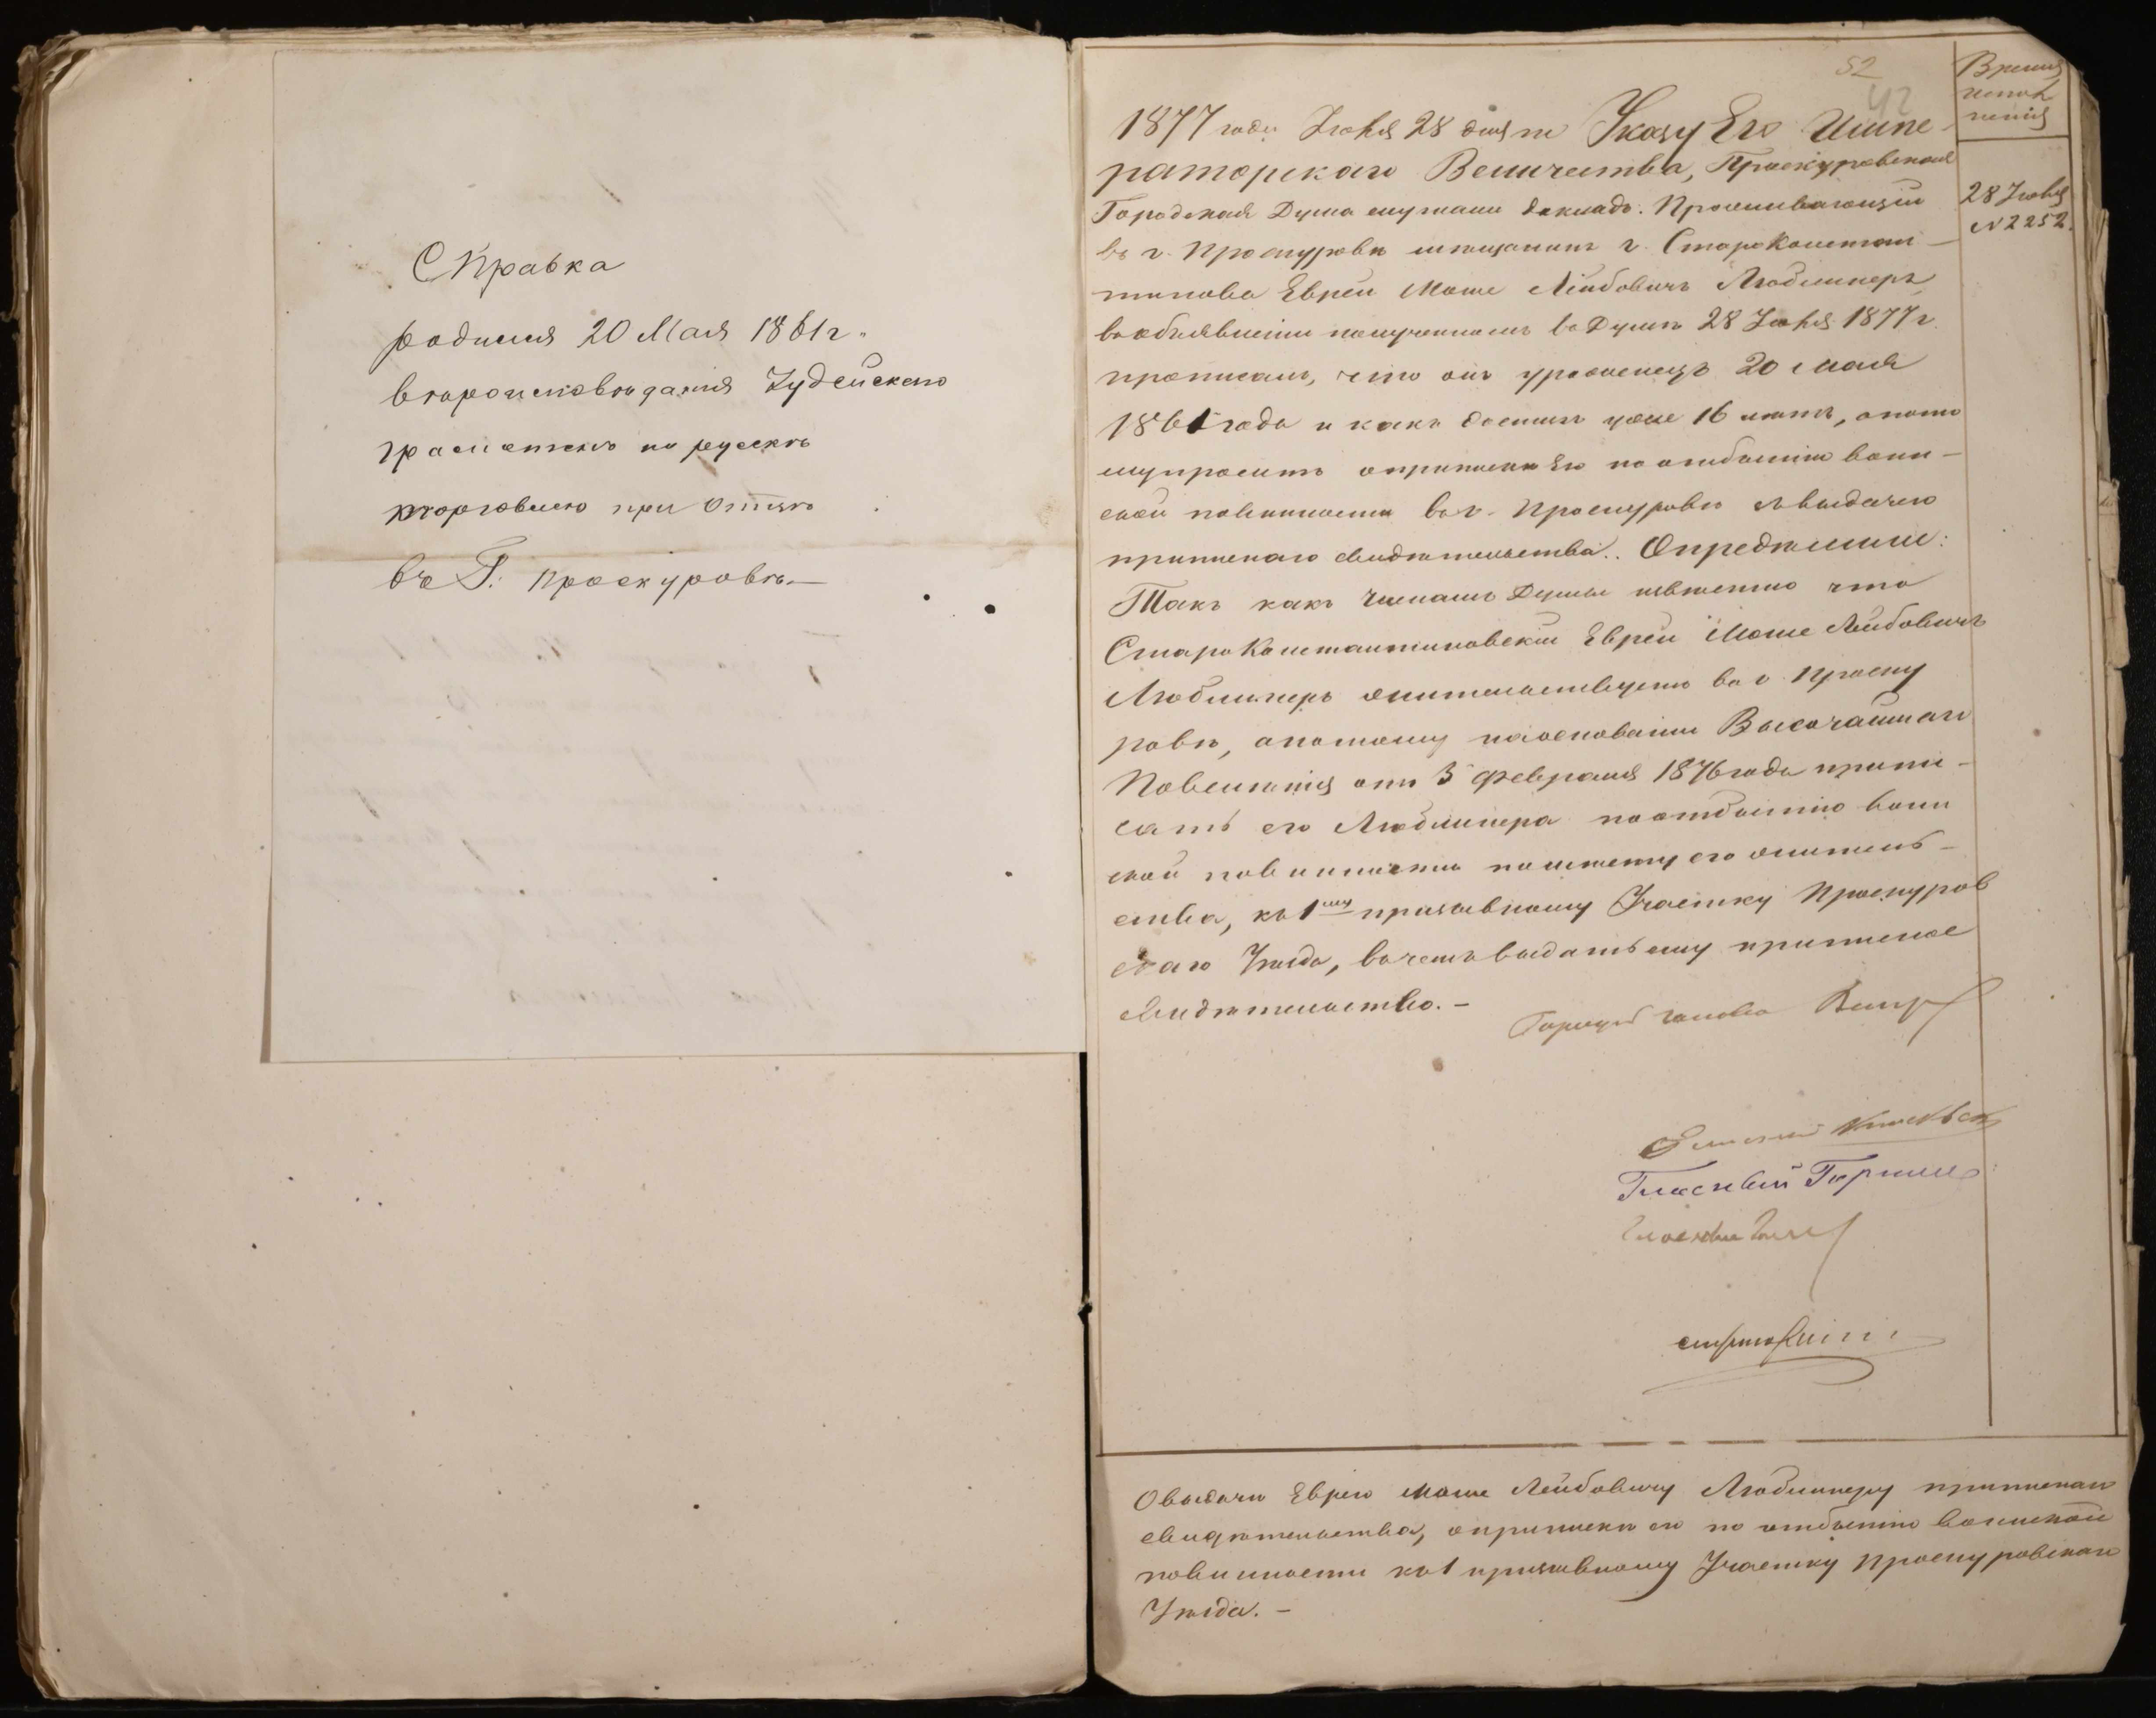 Справка
родился 20 Мая 1861 г.
вероисповѣданія Іудейскаго
грамотенъ по русскѣ
торговлею при Отцѣ
въ Г. Проскуровѣ.—
52
42
Время
испол
ненія
28 Іюня
№ 2252.
1877 года Іюня 28 дня по Указу Его Импе-
раторскаго Величества, Проскуровская
Городская Дума слушали докладъ. Проживающій
въ г. Проскуровѣ мѣщанинъ г. Староконстан-
тинова Еврей Моше Лейбовичъ Люблинеръ
въ объявленіи полученномъ въ Думѣ 28 Іюня 1877 г.
прописалъ, что онъ уроженецъ 20 мая
1861 года и какъ достигъ уже 16 лѣтъ, а пото
му проситъ о припискѣ Его по отбытію воин-
ской повинности въ г. Проскуровѣ и выдачею
приписнаго свидѣтельства. Опредѣлили:
Такъ какъ Членамъ Думы извѣстно что
СтароКонстантиновскій Еврей Моше Лейбовичъ
Люблинеръ жительствуетъ въ г. Проску
ровѣ, а потому на основаніи Высочайшаго
Повелѣнія отъ 3 февраля 1876 года припи-
сать его Люблинера по отбытію воин
ской повинности по мѣсту его житель-
ства, къ 1му призывному Участку Проскуров
скаго Уѣзда, въ чемъ выдать ему приписное
свидѣтельство.—
Городской голова
Гласный
Гласный
О выдачи Еврею Моше Лейбовичу Люблинеру приписнаго
свидѣтельства, о припискѣ его по отбытію воинской
повинности къ 1 призывному Участку Проскуровскаго
Уѣзда.—